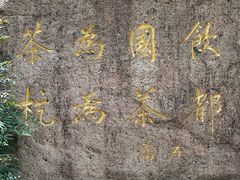 茶為國飲
杭為茶都